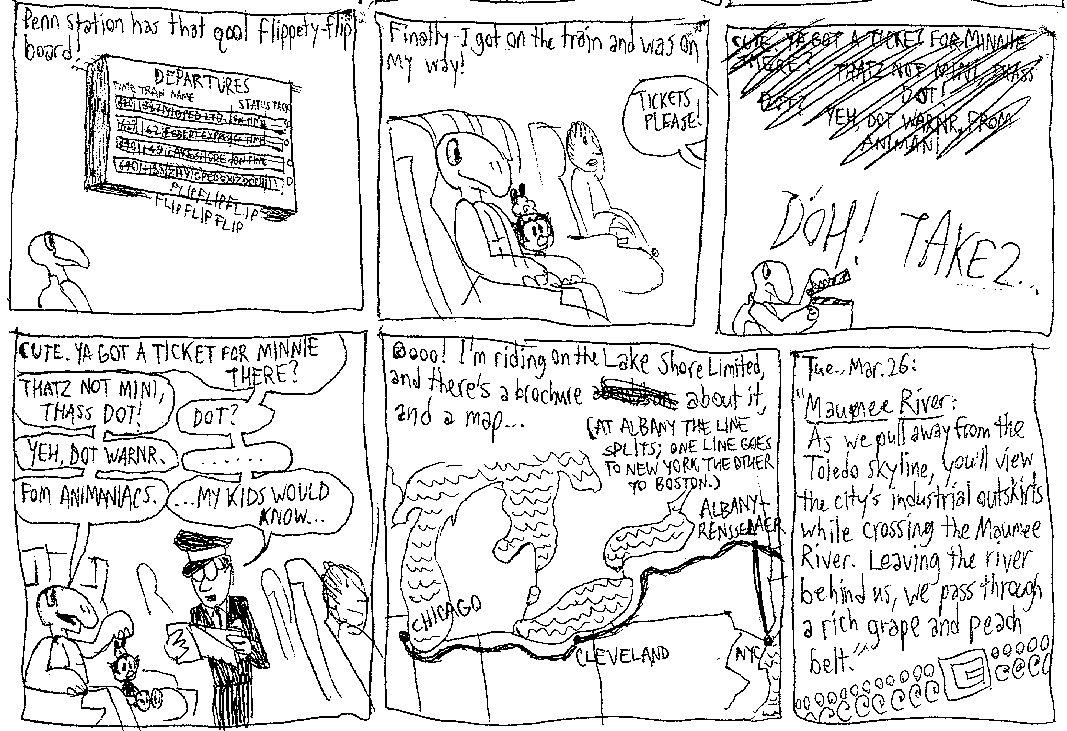 Penn station has that qool flippety-flip
board!
DEPARTURES
TIME TRAIN NAME
STATUS
FLIPFLIPFLIP
FLIPFLIPFLIP
Finally I got on the train and was on
my way!
TICKETS
PLEASE!
CUTE. YA GOT A TICKET FOR MINNIE
THERE?
THATZ NOT MINI, THASS
DOT!
DOT?
YEH, DOT WARNR, FROM
ANIMANI
D'OH!
TAKE 2...
CUTE. YA GOT A TICKET FOR MINNIE
THERE?
THATZ NOT MINI,
THASS DOT!
DOT?
YEH, DOT WARNR.
.......
FOM ANIMANIACS.
...MY KIDS WOULD
KNOW...
Oooo! I'm riding on the Lake Shore Limited,
and there's a brochure about it,
and a map...
(AT ALBANY THE LINE
SPLITS; ONE LINE GOES
TO NEW YORK, THE OTHER
YO BOSTON.)
ALBANY-
RENSSELAER
CHICAGO
CLEVELAND
NYC
Tue. Mar. 26:
"Maumee River:
As we pull away from the
Toledo skyline, you'll view
the city's industrial outskirts
while crossing the Maumee
River. Leaving the river
behind us, we pass through
a rich grape and peach
belt."